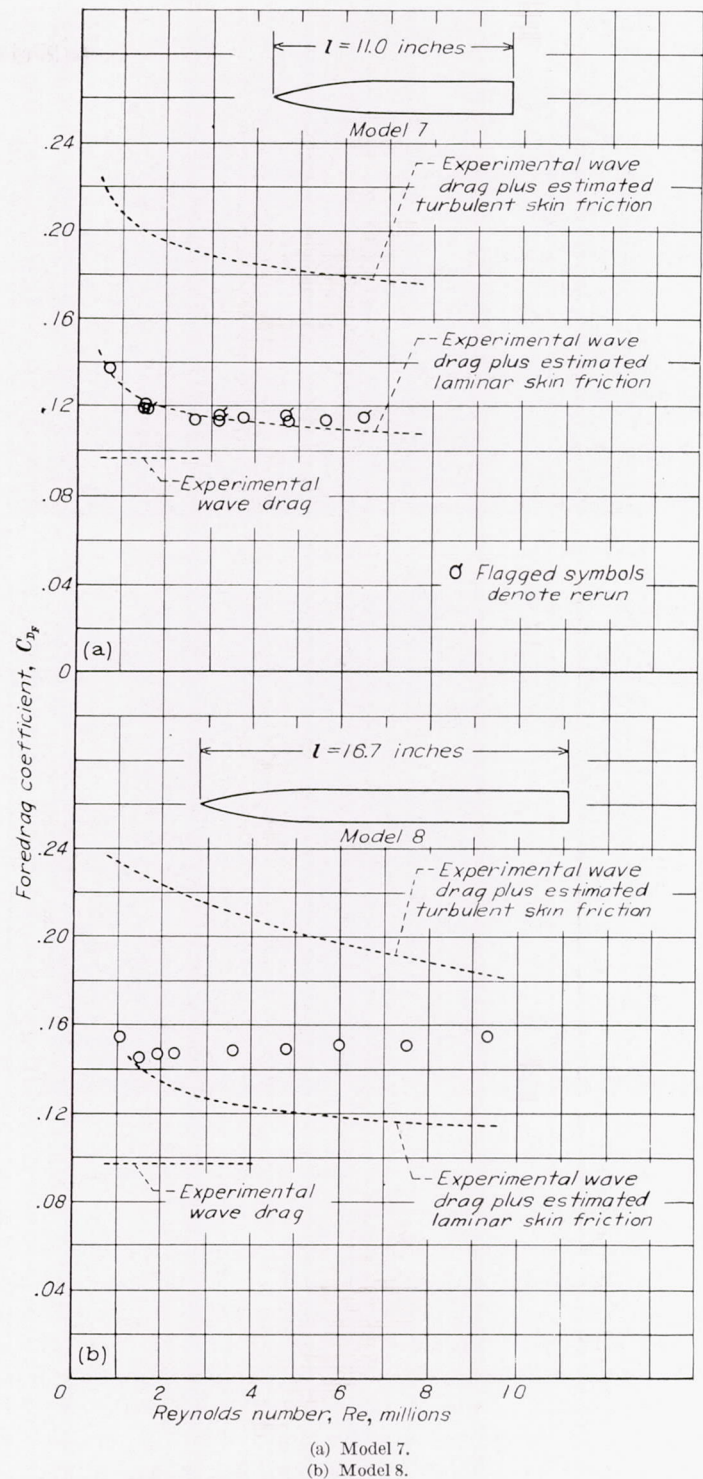 l = 11.0 inches
Model 7
.24
Experimental wave
drag plus estimated
turbulent skin friction
.20
.16
Experimental wave
drag plus estimated
laminar skin friction
.12
Experimental
wave drag
.08
Flagged symbols
denote rerun
.04
(a)
0
Foredrag coefficient, C_{D_F}
l = 16.7 inches
Model 8
.24
Experimental wave
drag plus estimated
turbulent skin friction
.20
.16
.12
Experimental
wave drag
Experimental wave
drag plus estimated
laminar skin friction
.08
.04
(b)
0 2 4 6 8 10
Reynolds number, Re, millions
(a) Model 7.
(b) Model 8.